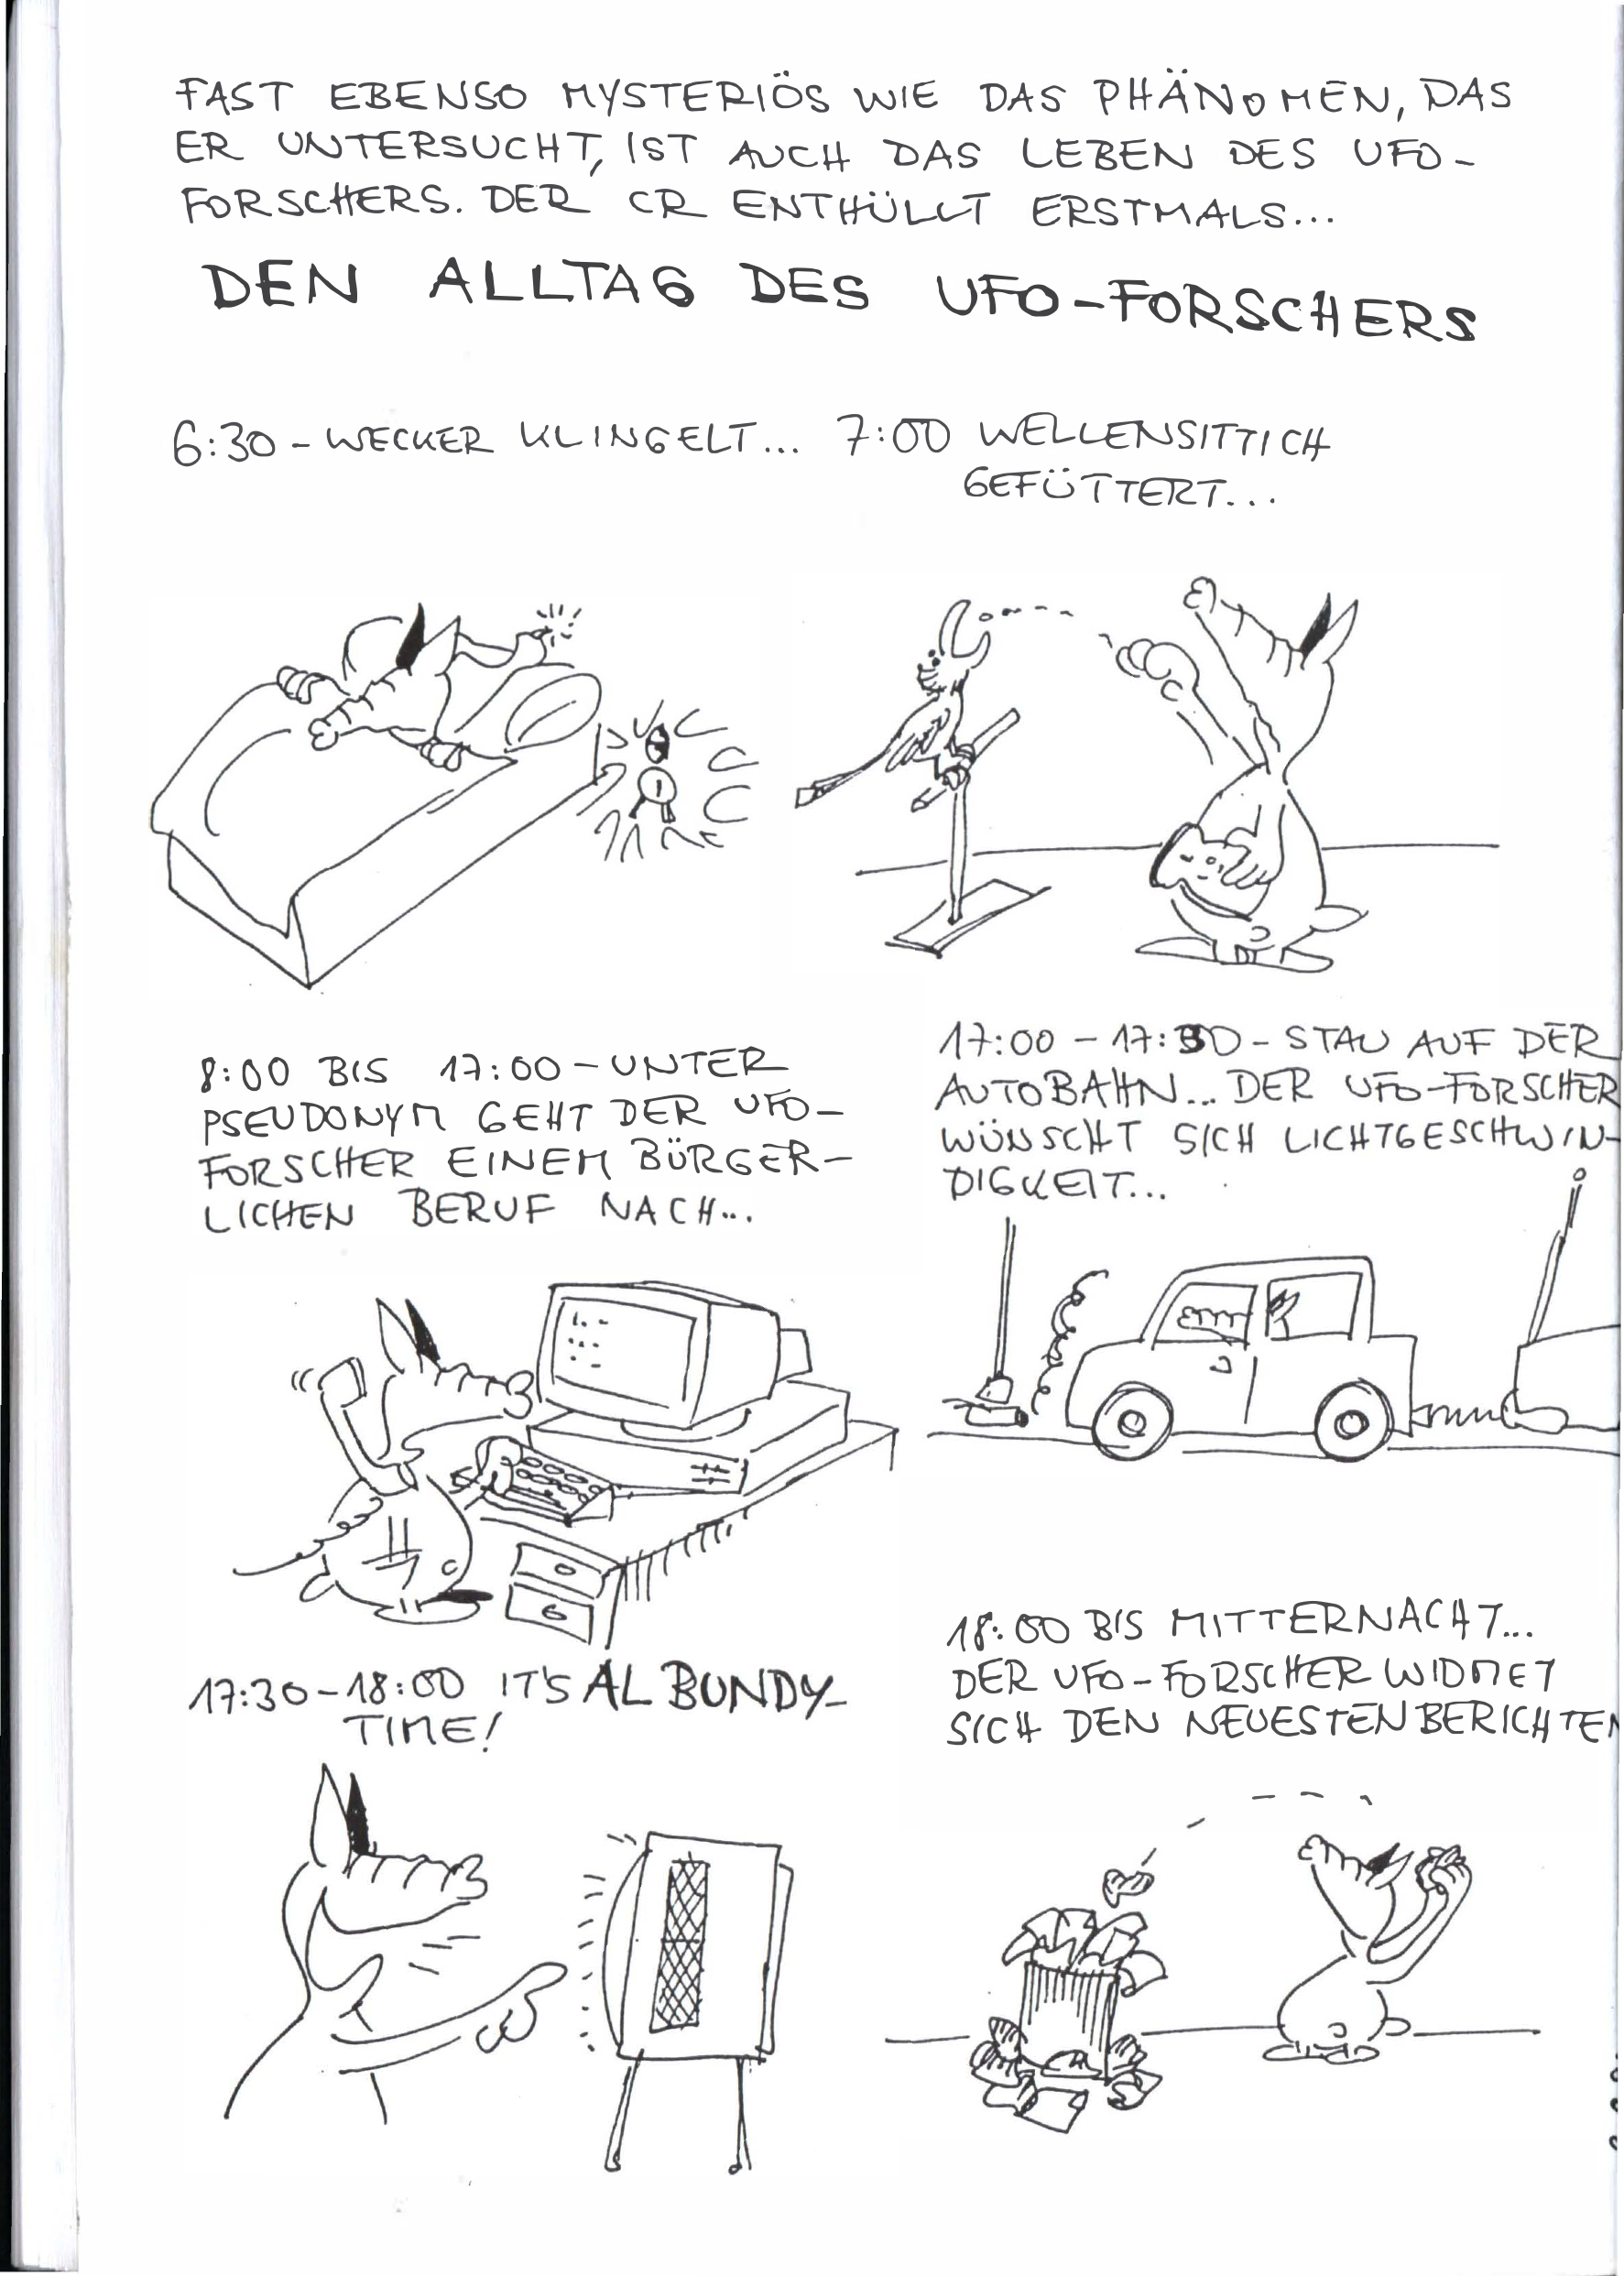 FAST EBENSO MYSTERIÖS WIE DAS PHÄNOMEN, DAS
ER UNTERSUCHT, IST AUCH DAS LEBEN DES UFO-
FORSCHERS. DER CR ENTHÜLLT ERSTMALS...
DEN ALLTAG DES UFO-FORSCHERS
6:30 - WECKER KLINGELT...
7:00 WELLENSITTICH
GEFÜTTERT...
8:00 BIS 17:00 - UNTER
PSEUDONYM GEHT DER UFO-
FORSCHER EINEM BÜRGER-
LICHEN BERUF NACH...
17:00 - 17:30 - STAU AUF DER
AUTOBAHN... DER UFO-FORSCHER
WÜNSCHT SICH LICHTGESCHWIN-
DIGKEIT...
17:30 - 18:00 IT'S AL BUNDY-
TIME!
18:00 BIS MITTERNACHT...
DER UFO-FORSCHER WIDMET
SICH DEN NEUESTEN BERICHTEN